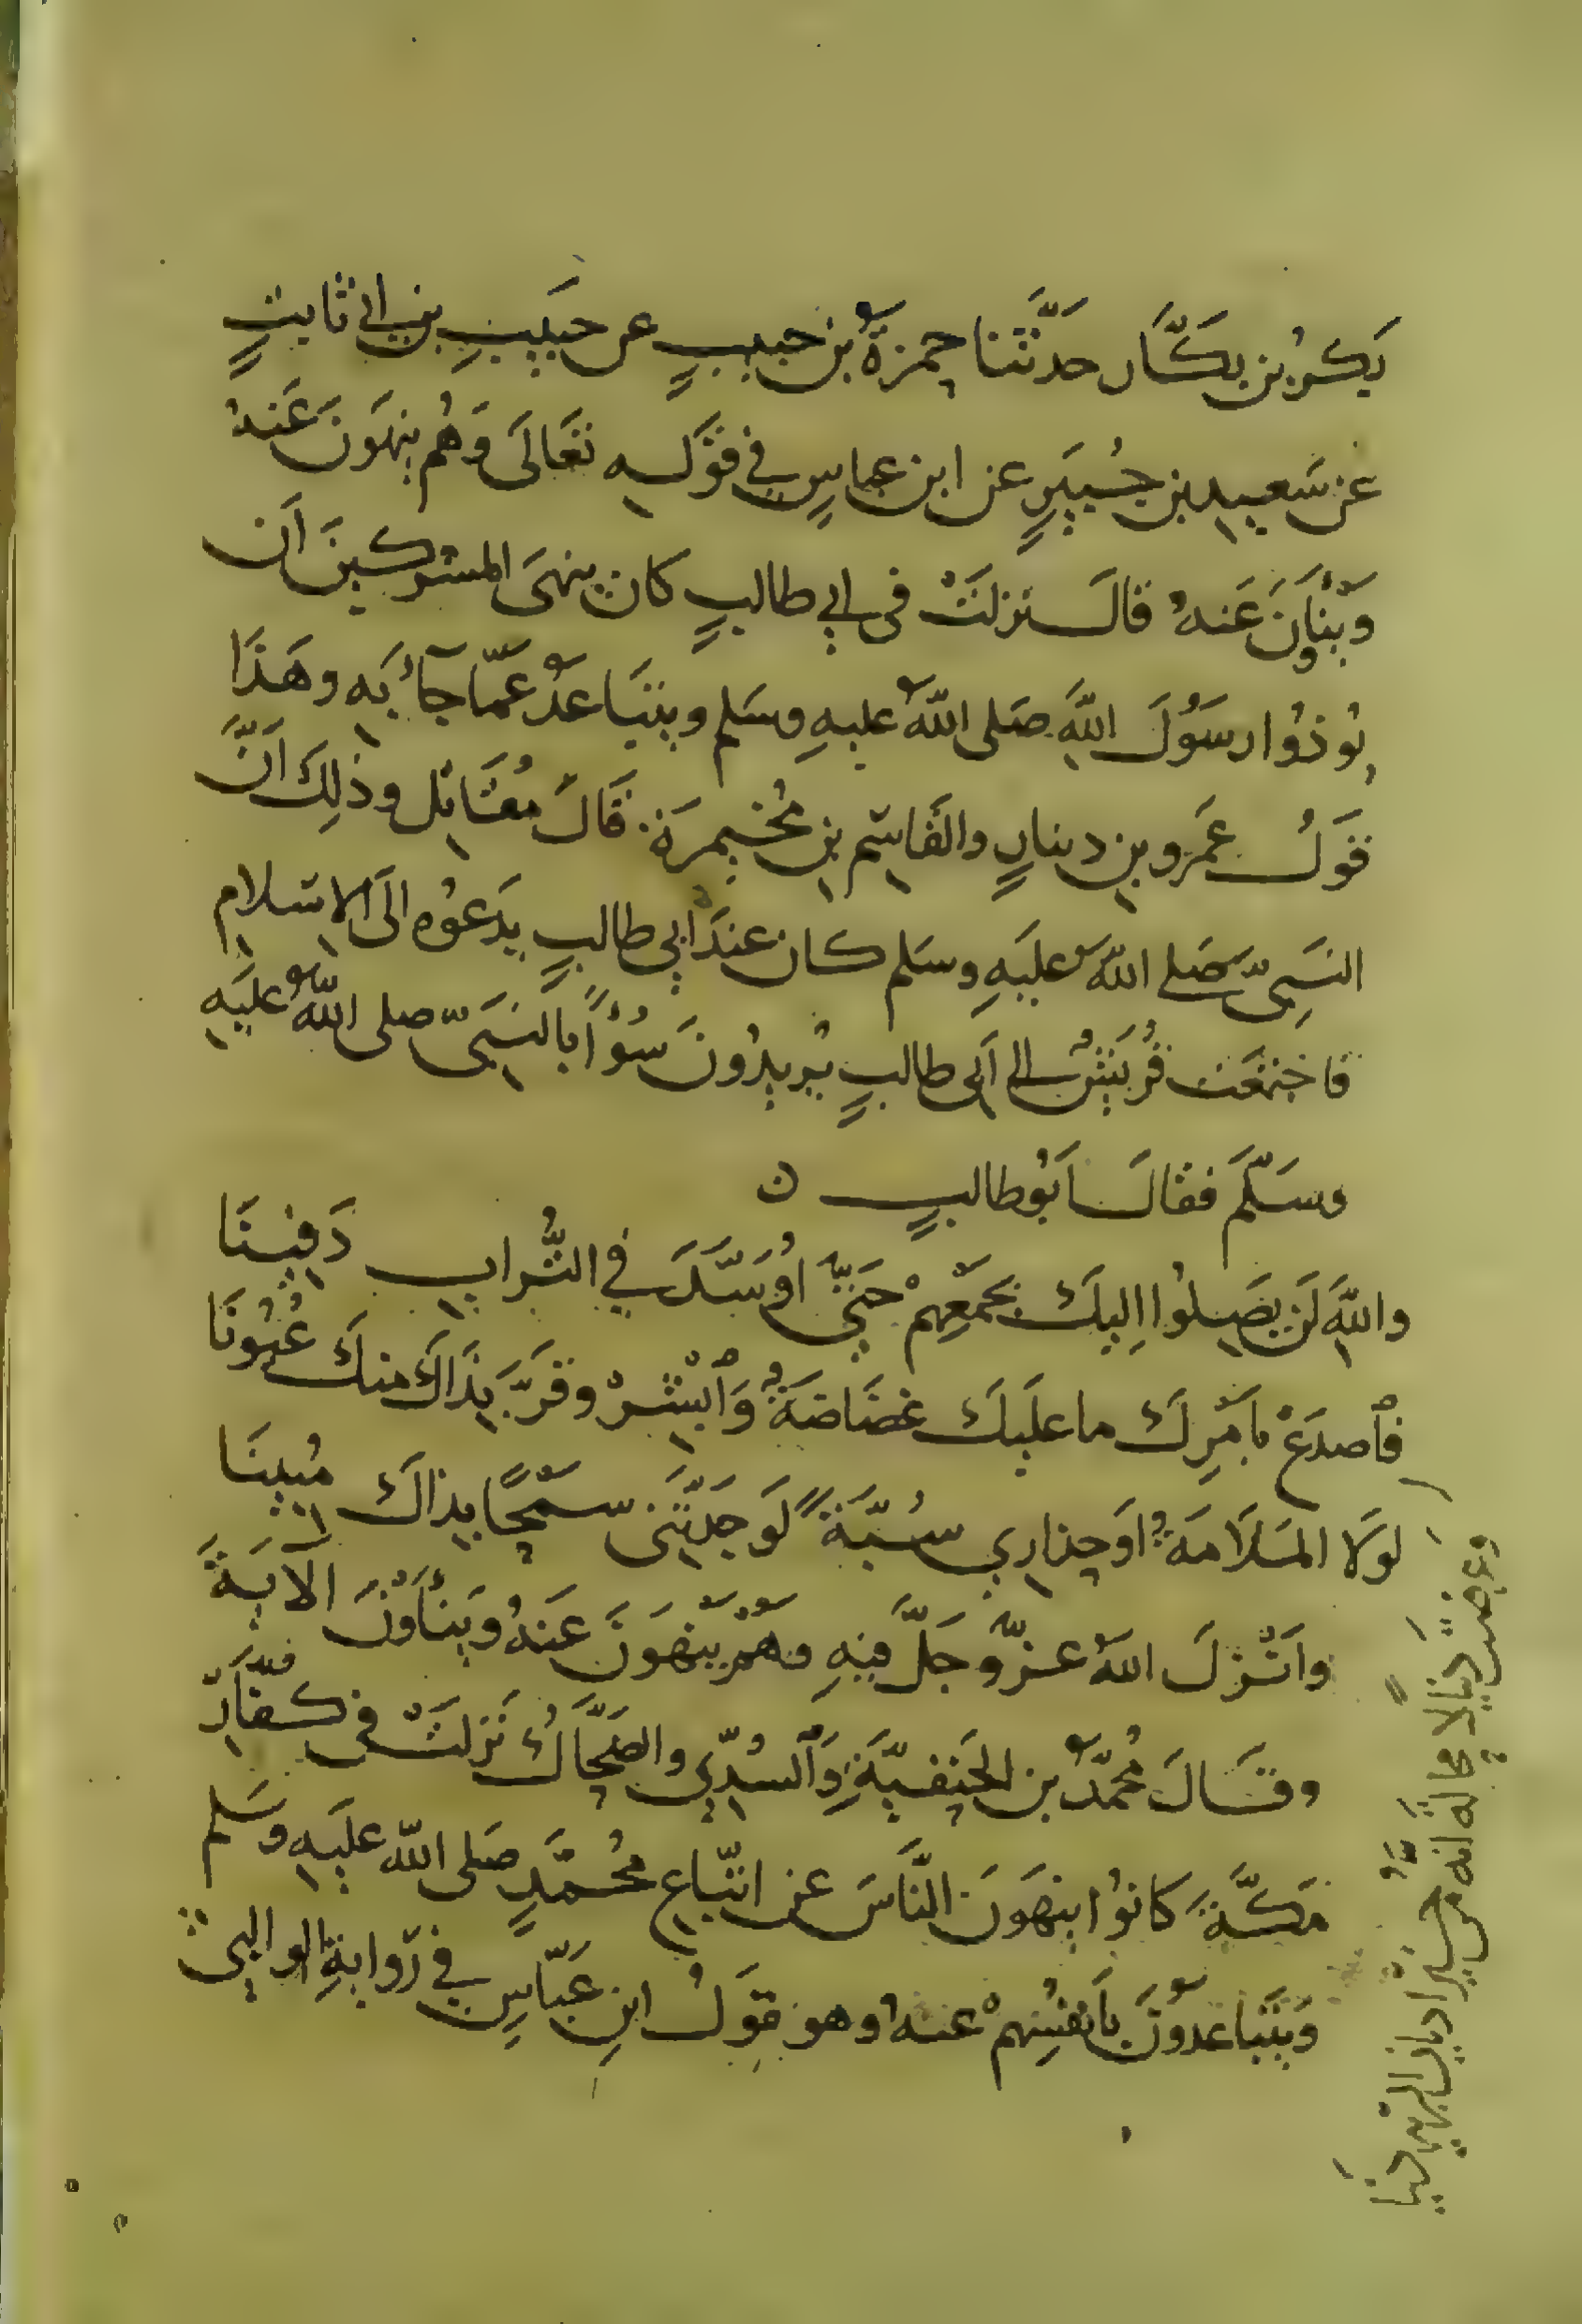 بَكرُ بن بكَّار حدَّثنا حمزةُ بن حبيبٍ عن حَبيبِ بن ابي ثابتٍ
عن سَعيد بن جُبَيرٍ عن ابن عباسٍ في قوَله تعَالَى وَهُم ينهَونَ عَنهُ
وَيَنأونَ عَنهُ قالَ نزلَتْ في ابي طالبٍ كان ينهىَ المشركينَ اَن
يُوذُوا رسَوُلَ اللَّهِ صَلى اللَّهُ عليهِ وسَلم ويتبَاعدُ عَمّا جآءَ بَه وهَذَا
قوَلُ عَمَرو بن دينارٍ والقَاسِم بنِ مُخَيمرَة قَالَ مُقَاتل وذلِكَ اَنَّ
النبَيَّ صَلى اللَّهُ عَليَهِ وسَلم كان عندَ اَبي طالبٍ يدَعوُه الَى الاِسلامِ
فاجتمعَت قُريَشٌ الى اَبى طالبٍ يُريدُونَ سُوْءًا بالنبَيّ صلى اللَّهُ عليَهِ
وسَلّمَ فقالَ اَبوُ طالبٍ ن
واللَّهِ لَن يَصِلُوا اِليكَ بجَمَعِهِمْ حتَىّ اُوسَّدَ في التُّرابِ دَفِينَا
فاَصدَعْ باَمَرِكَ ما عليَكَ غضَاضَةٌ وَاَبشرْ وقرَّ بِذَاكَ منكَ عُيُونَا
لوَلا المَلاَمَةُ اوَ حِذارِي سُبَّةً لَوَجَدتَّني سَمْحًا بِذاكَ مُبِينَا
واَنْزلَ اللَّهُ عزَّ وجَلَّ فيهِ وهُمْ ينَهوَنَ عَنَهُ وَيَنأَوْنَ الايَةَ
وقَالَ مُحمَّدُ بن الحنَفيَّةِ وَالسُدِّي والضَحَّاكُ نَزلَتْ في كفَّارِ
مَكَّةَ كانوُا ينهَونَ النَّاسَ عن اتّباعِ مُحمَّدٍ صَلى اللَّه عَليَهِ وسَلم
وَيَتَبَاعَدُونَ باَنفُسِهمْ عَنهُ وهو قوَلُ ابنِ عَبَّاسٍ في رَوايَةِ الوالبي
وَعَرضَت دينًا لا محالةَ انَّهُ من خيرِ اديان البريَّةِ دينَا